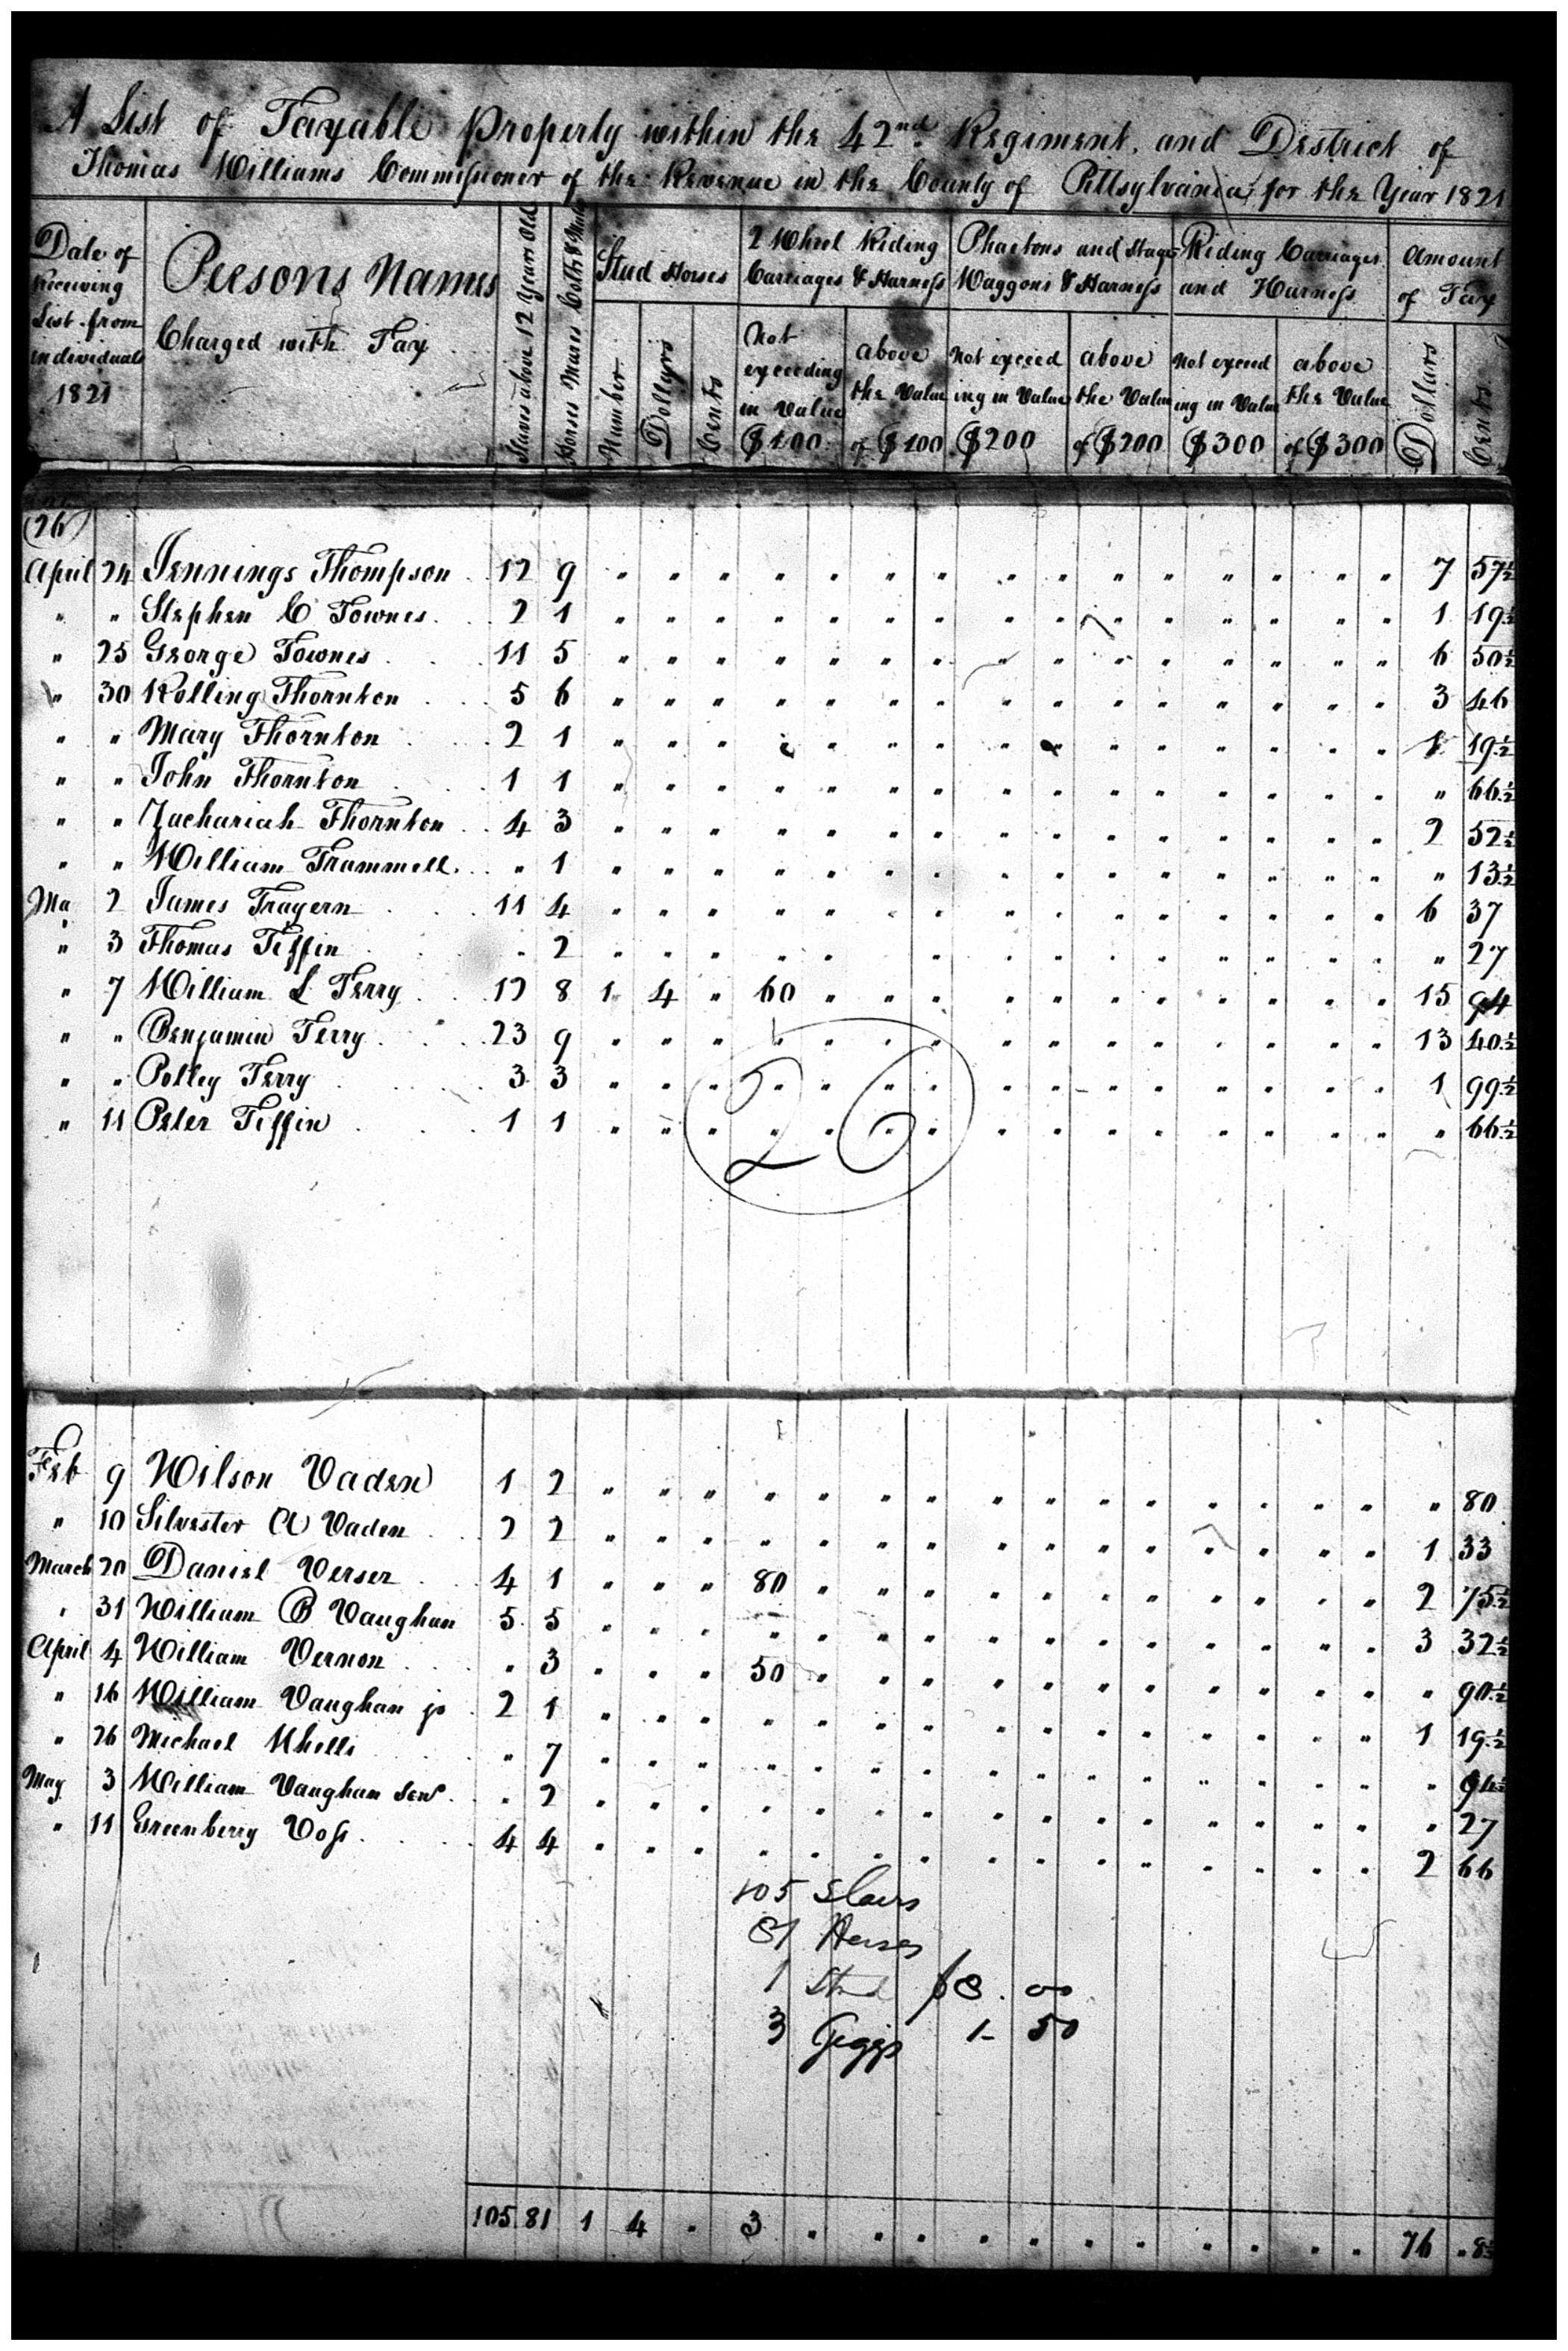 A List of Taxable Property within the 42nd Regiment, and District of
Thomas Williams Commissioner of the Revenue in the County of Pittsylvania, for the Year 1821
Date of Receiving List from individuals 1821
Persons Names Charged with Tax
Slaves above 12 Years Old
Horses Mares Colts & Mules
Stud Horses
Number
Dollars
Cents
2 Wheel Riding Carriages & Harness
Not exceeding in Value $100
above the Value of $100
Phaetons and Stage Waggons & Harness
Not exceeding in Value $200
above the Value of $200
Riding Carriages and Harness
Not exceeding in Value $300
above the Value of $300
Amount of Tax
Dollars
Cents
(26)
April 24 Jennings Thompson 12 9 " " " " " " " " " " " " " " " 7 57½
" " Stephen C Townes 2 1 " " " " " " " " " " " " " " " 1 19½
" 25 George Townes 11 5 " " " " " " " " " " " " " " " 6 50½
" 30 Rolling Thornton 5 6 " " " " " " " " " " " " " " " 3 46
" " Mary Thornton 2 1 " " " " " " " " " " " " " " " 1 19½
" " John Thornton 1 1 " " " " " " " " " " " " " " " " 66½
" " Zachariah Thornton 4 3 " " " " " " " " " " " " " " " 2 52½
" " William Trammell " 1 " " " " " " " " " " " " " " " " 13½
Ma 2 James Trayern 11 4 " " " " " " " " " " " " " " " 6 37
" 3 Thomas Tiffin " 2 " " " " " " " " " " " " " " " " 27
" 7 William L Terry 12 8 1 4 " 60 " " " " " " " " " " " 15 94
" " Benjamin Terry 23 9 " " " " " " " " " " " " " " " 13 40½
" " Polley Terry 3 3 " " " " " " " " " " " " " " " 1 99½
" 11 Peter Tiffin 1 1 " " " " " " " " " " " " " " " " 66½
26
Feb 9 Wilson Vaden 1 2 " " " " " " " " " " " " " " " " 80
" 10 Silvester A Vaden 2 2 " " " " " " " " " " " " " " " 1 33
March 20 Daniel Verser 4 1 " " " 80 " " " " " " " " " " " 2 75½
" 31 William B Vaughan 5 5 " " " " " " " " " " " " " " " 3 32½
April 4 William Vernon " 3 " " " 50 " " " " " " " " " " " " 90½
" 16 William Vaughan jr 2 1 " " " " " " " " " " " " " " " 1 19½
" 26 Michael " 7 " " " " " " " " " " " " " " " " 94½
May 3 William Vaughan Senr " 2 " " " " " " " " " " " " " " " " 27
" 11 Greenberry Voss 4 4 " " " " " " " " " " " " " " " 2 66
105 Slaves
81 Horses
1 Stud $8.00
3 Giggs 1-50
105 81 1 4 " 3 " " " " " " " " " " " 76 " 8½